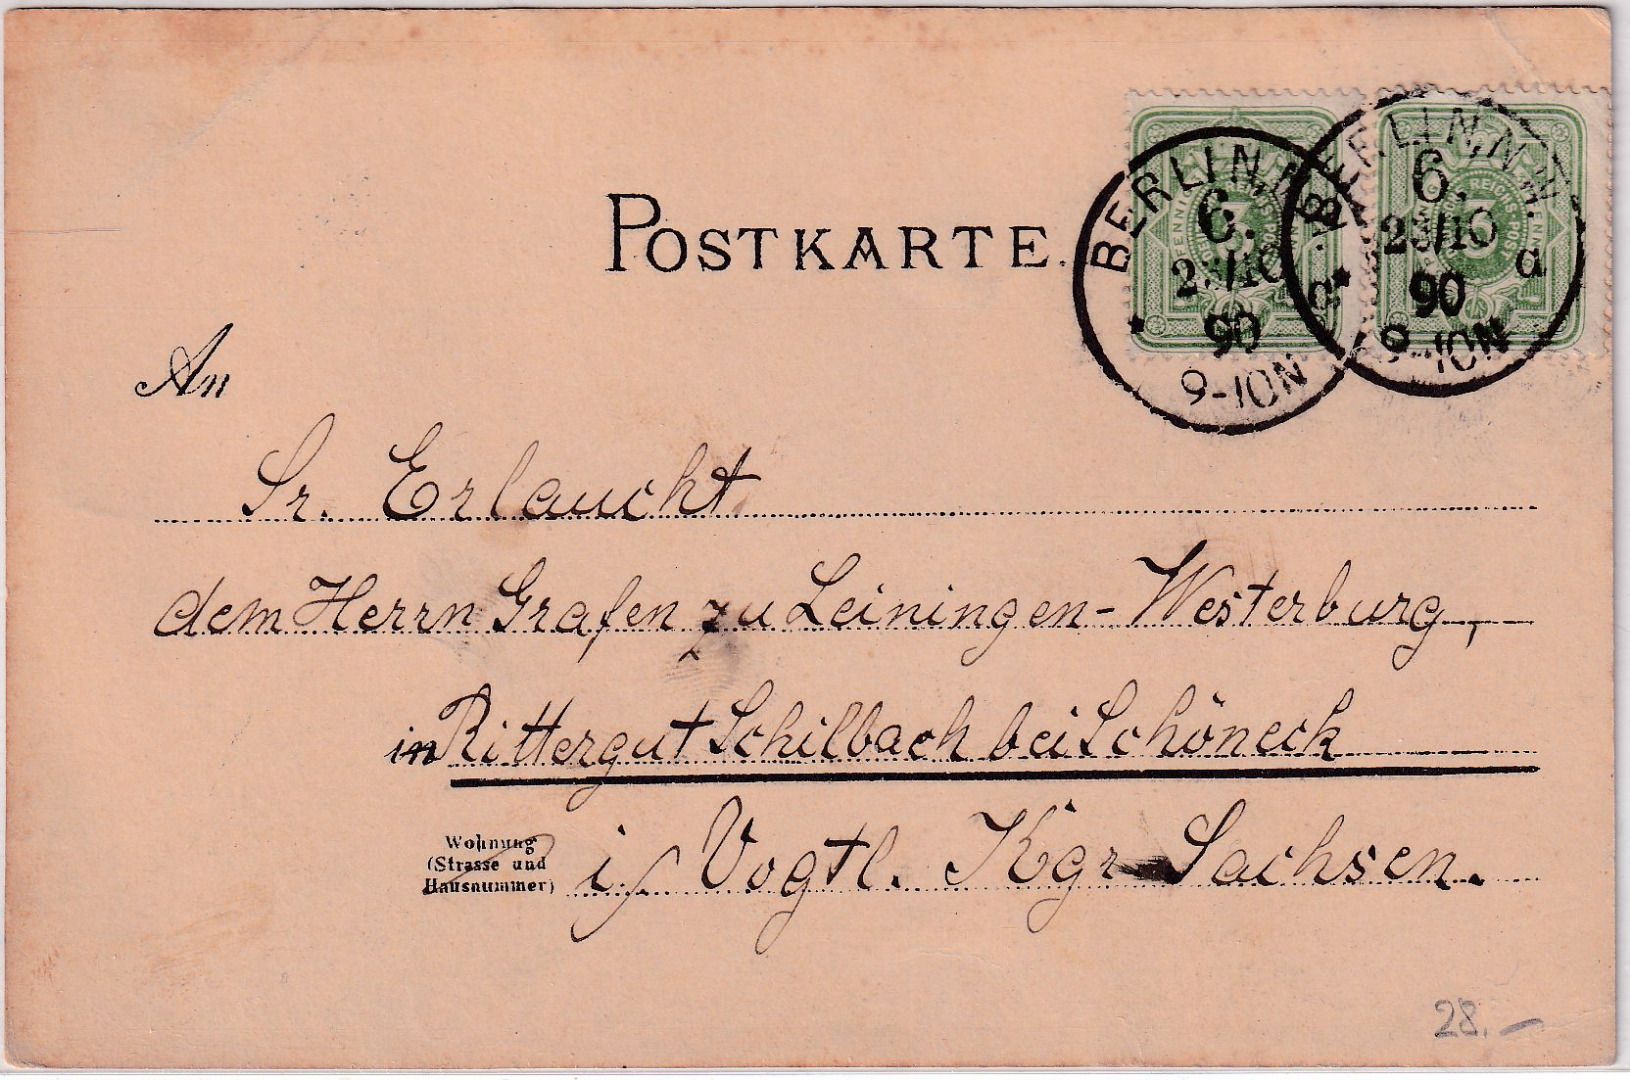 POSTKARTE.
BERLIN, N.W.
6.
23/10
90
9-10N
a
BERLIN, N.W.
6.
23/10
90
9-10N
a
An
Sr. Erlaucht
dem Herrn Grafen zu Leiningen-Westerburg,
in Rittergut Schilbach bei Schöneck
Wohnung
(Strasse und
Hausnummer)
i/ Vogtl. Kgr Sachsen.
28.—